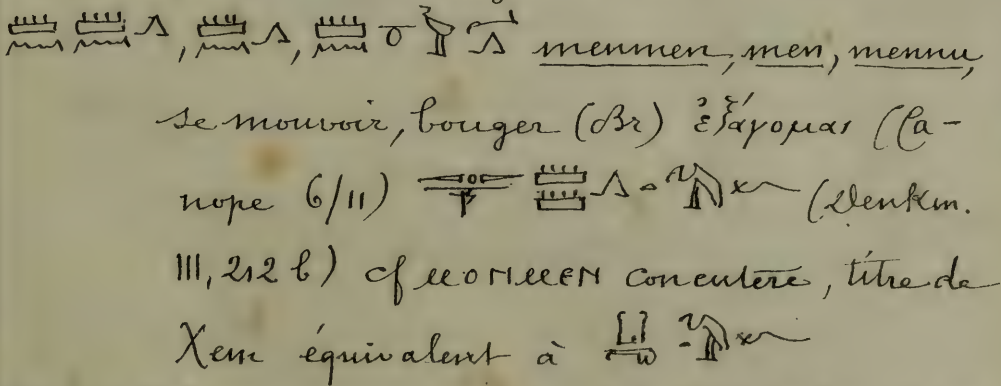 𓏠𓈖𓏠𓈖𓂻, 𓏠𓈖𓂻, 𓏠𓈖 menmen, men, mennu,
se mouvoir, bouger (Br) ἐξάγομαι (Ca-
nope 6/11) 𓏠𓏠𓂻 (Denkm.
III, 212 b) cf ⲙⲟⲛⲙⲉⲛ concutere, titre de
Xem équivalent à